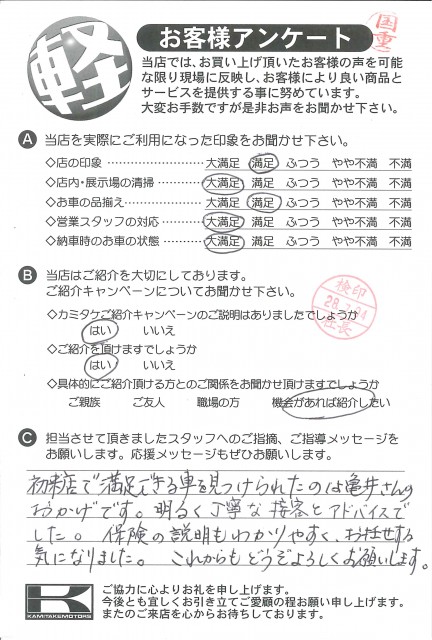 軽
お客様アンケート
国重
当店では、お買い上げ頂いたお客様の声を可能
な限り現場に反映し、お客様により良い商品と
サービスを提供する事に努めています。
大変お手数ですが是非お声をお聞かせ下さい。
A 当店を実際にご利用になった印象をお聞かせ下さい。
◇店の印象 大満足 満足 ふつう やや不満 不満
◇店内・展示場の清掃 大満足 満足 ふつう やや不満 不満
◇お車の品揃え 大満足 満足 ふつう やや不満 不満
◇営業スタッフの対応 大満足 満足 ふつう やや不満 不満
◇納車時のお車の状態 大満足 満足 ふつう やや不満 不満
B 当店はご紹介を大切にしております。
ご紹介キャンペーンについてお聞かせ下さい。
検印
社長
◇カミタケご紹介キャンペーンのご説明はありましたでしょうか
はい いいえ
◇ご紹介を頂けますでしょうか
はい いいえ
◇具体的にご紹介頂ける方とのご関係をお聞かせ頂けますでしょうか
ご親族 ご友人 職場の方 機会があれば紹介したい
C 担当させて頂きましたスタッフへのご指摘、ご指導メッセージを
お願いします。応援メッセージもぜひお願いします。
初来店で満足できる車を見つけられたのは亀井さんの
おかげです。明るく丁寧な接客とアドバイスで
した。保険の説明もわかりやすく、お任せする
気になりました。これからもどうぞよろしくお願いします。
K
KAMITAKEMOTORS
ご協力に心よりお礼を申し上げます。
今後とも宜しくお引き立てご愛顧の程お願い申し上げます。
またのご来店を心からお待ちしております。